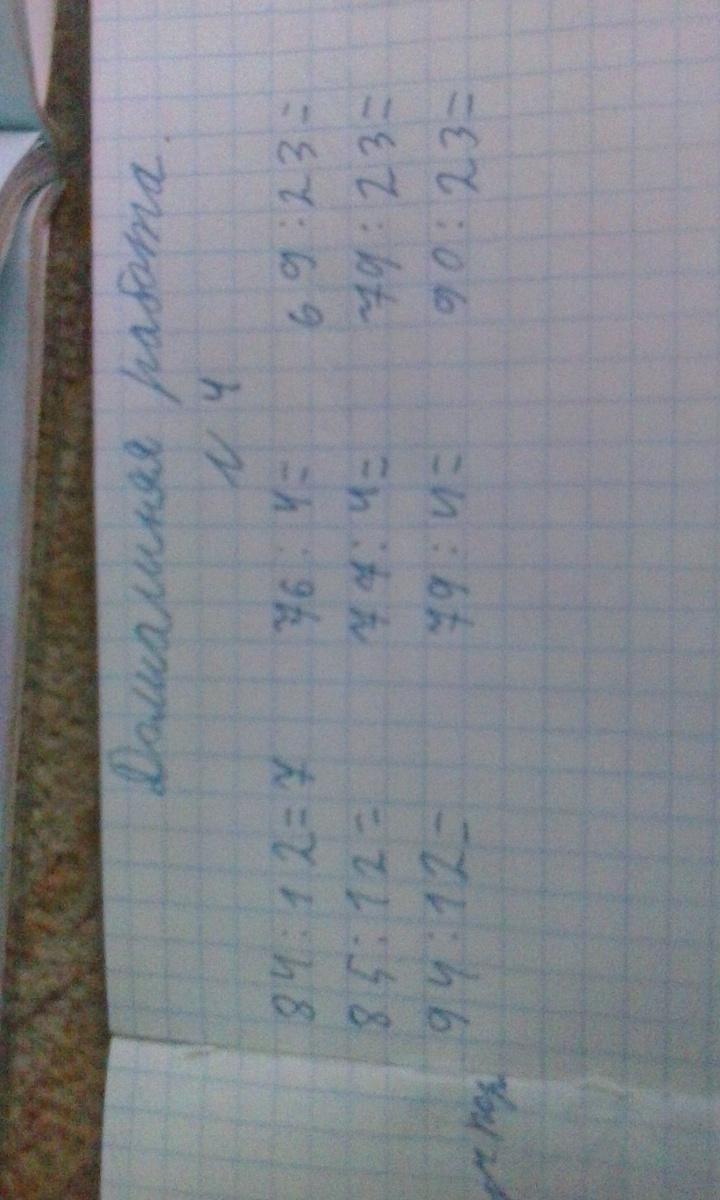 Домашняя работа.
N 4
84:12=7 76:4= 69:23=
85:12= 77:4= 79:23=
94:12= 79:4= 90:23=